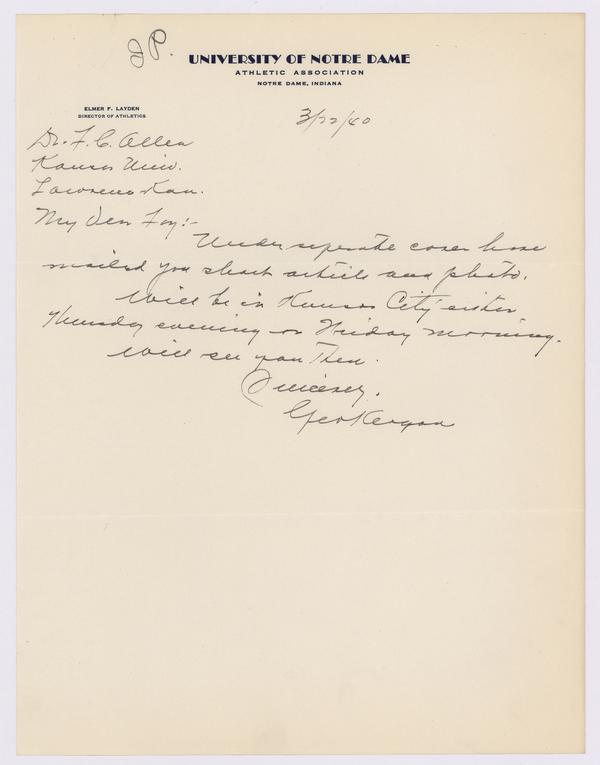 JP.
UNIVERSITY OF NOTRE DAME
ATHLETIC ASSOCIATION
NOTRE DAME, INDIANA
ELMER F. LAYDEN
DIRECTOR OF ATHLETICS
3/22/40
Dr. F. C. Allen
Kansas Univ.
Lawrence Kan.
My Dear Fog:-
Under seperate cover have
mailed you short article and photo.
Will be in Kansas City either
Thursday evening or Friday morning.
Will see you then.
Sincerely,
Geo Keogan